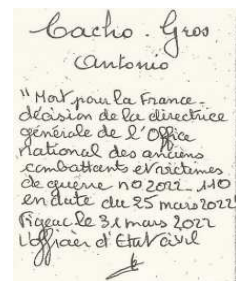 Cacho-Gros
Antonio
"Mort pour la France -
décision de la directrice
générale de l'Office
national des anciens
combattants et victimes
de guerre no 2022-110
en date du 25 mars 2022"
Figeac le 31 mars 2022
L'officier d'Etat civil